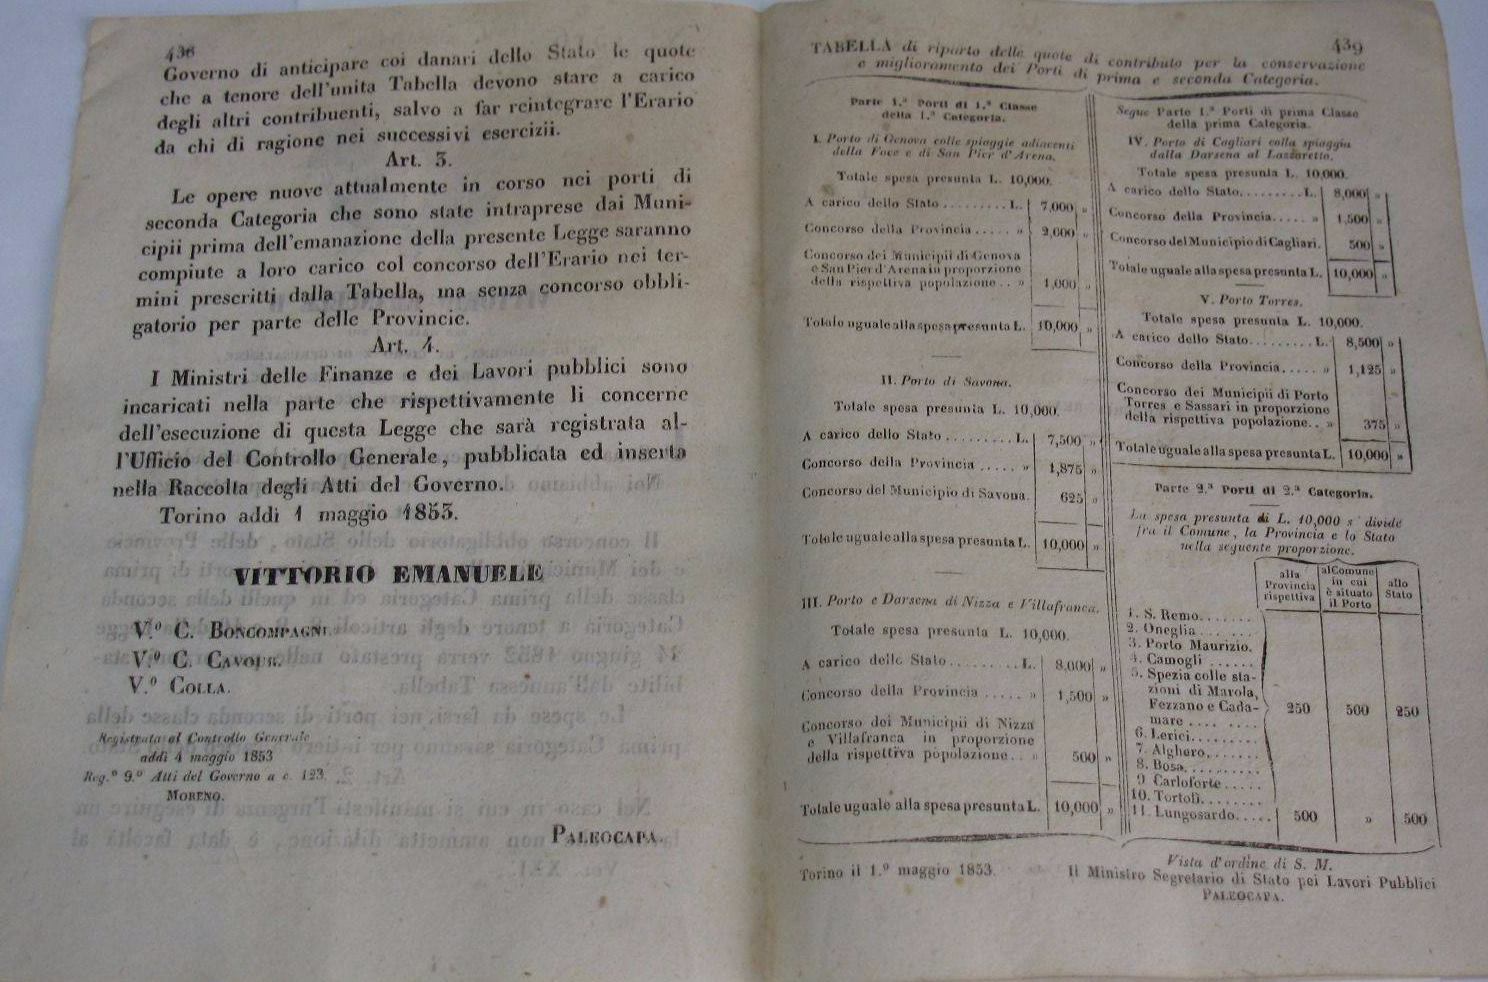 436
Governo di anticipare coi danari dello Stato le quote
che a tenore dell'unita Tabella devono stare a carico
degli altri contribuenti, salvo a far reintegrare l'Erario
da chi di ragione nei successivi esercizii.
Art. 3.
Le opere nuove attualmente in corso nei porti di
seconda Categoria che sono state intraprese dai Muni-
cipii prima dell'emanazione della presente Legge saranno
compiute a loro carico col concorso dell'Erario nei ter-
mini prescritti dalla Tabella, ma senza concorso obbli-
gatorio per parte delle Provincie.
Art. 4.
I Ministri delle Finanze e dei Lavori pubblici sono
incaricati nella parte che rispettivamente li concerne
dell'esecuzione di questa Legge che sarà registrata al-
l'Ufficio del Controllo Generale, pubblicata ed inserta
nella Raccolta degli Atti del Governo.
Torino addì 1 maggio 1853.
VITTORIO EMANUELE
V.° C. BONCOMPAGNI.
V.° C. CAVOUR.
V.° COLLA.
Registrata al Controllo Generale
addì 4 maggio 1853
Reg.° 9.° Atti del Governo a c. 123.
MORENO.
PALEOCAPA.
439
TABELLA di riparto delle quote di contributo per la conservazione
e miglioramento dei Porti di prima e seconda Categoria.
Parte 1.ª Porti di 1.ª Classe
della 1.ª Categoria.
I. Porto di Genova colle spiaggie adiacenti
della Foce e di San Pier d'Arena.
Totale spesa presunta L. 10,000.
A carico dello Stato ......... L. 7,000 »
Concorso della Provincia ..... » 2,000 »
Concorso dei Municipii di Genova
e San Pier d'Arena in proporzione
della rispettiva popolazione .. » 1,000 »
Totale uguale alla spesa presunta L. 10,000 »
II. Porto di Savona.
Totale spesa presunta L. 10,000.
A carico dello Stato ......... L. 7,500 »
Concorso della Provincia ..... » 1,875 »
Concorso del Municipio di Savona. 625 »
Totale uguale alla spesa presunta L. 10,000 »
III. Porto e Darsena di Nizza e Villafranca.
Totale spesa presunta L. 10,000.
A carico dello Stato .......... L. 8,000 »
Concorso della Provincia ..... » 1,500 »
Concorso dei Municipii di Nizza
e Villafranca in proporzione
della rispettiva popolazione .. » 500 »
Totale uguale alla spesa presunta L. 10,000 »
Torino il 1.° maggio 1853.
Segue Parte 1.ª Porti di prima Classe
della prima Categoria.
IV. Porto di Cagliari colla spiaggia
dalla Darsena al Lazzaretto.
Totale spesa presunta L. 10,000.
A carico dello Stato ......... L. 8,000 »
Concorso della Provincia ..... » 1,500 »
Concorso del Municipio di Cagliari. 500 »
Totale uguale alla spesa presunta L. 10,000 »
V. Porto Torres.
Totale spesa presunta L. 10,000.
A carico dello Stato ......... L. 8,500 »
Concorso della Provincia ..... » 1,125 »
Concorso dei Municipii di Porto
Torres e Sassari in proporzione
della rispettiva popolazione .. » 375 »
Totale uguale alla spesa presunta L. 10,000 »
Parte 2.ª Porti di 2.ª Categoria.
La spesa presunta di L. 10,000 s' divide
fra il Comune, la Provincia e lo Stato
nella seguente proporzione.
alla Provincia rispettiva
al Comune in cui è situato il Porto
allo Stato
1. S. Remo.......
2. Oneglia .......
3. Porto Maurizio.
4. Camogli ......
5. Spezia colle sta-
zioni di Marola,
Fezzano e Cada-
mare .... 250 500 250
6. Lerici.........
7. Alghero.......
8. Bosa..........
9. Carloforte .....
10. Tortolì........
11. Lungosardo..... 500 » 500
Vista d'ordine di S. M.
Il Ministro Segretario di Stato pei Lavori Pubblici
PALEOCAPA.